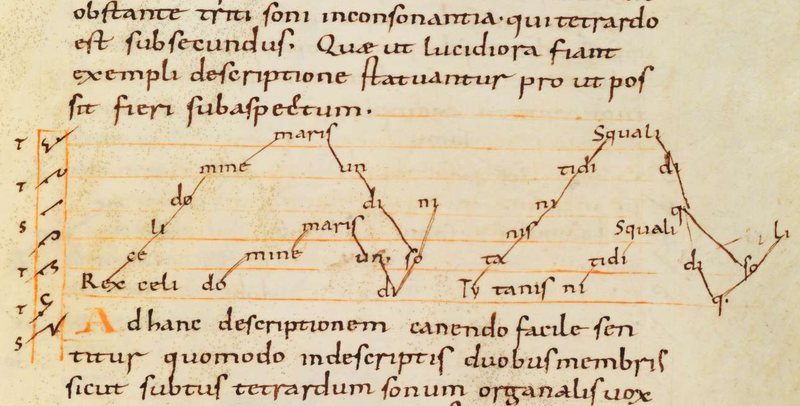 obstante triti soni inconsonantia. qui tetrardo
est subsecundus. Quæ ut lucidiora fiant
exempli descriptione statuantur pro ut pos
sit fieri subaspectum.
maris Squali
mine un tidi di
do di ni ni q
li maris nis Squali li
ce mine un so ta tidi di so
Rex celi do di Ty tanis ni q.
T
T
S
T
T
S
Ad hanc descriptionem canendo facile sen
titur quomodo indescriptis duobusmembris
sicut subtus tetrardum sonum organalisuox